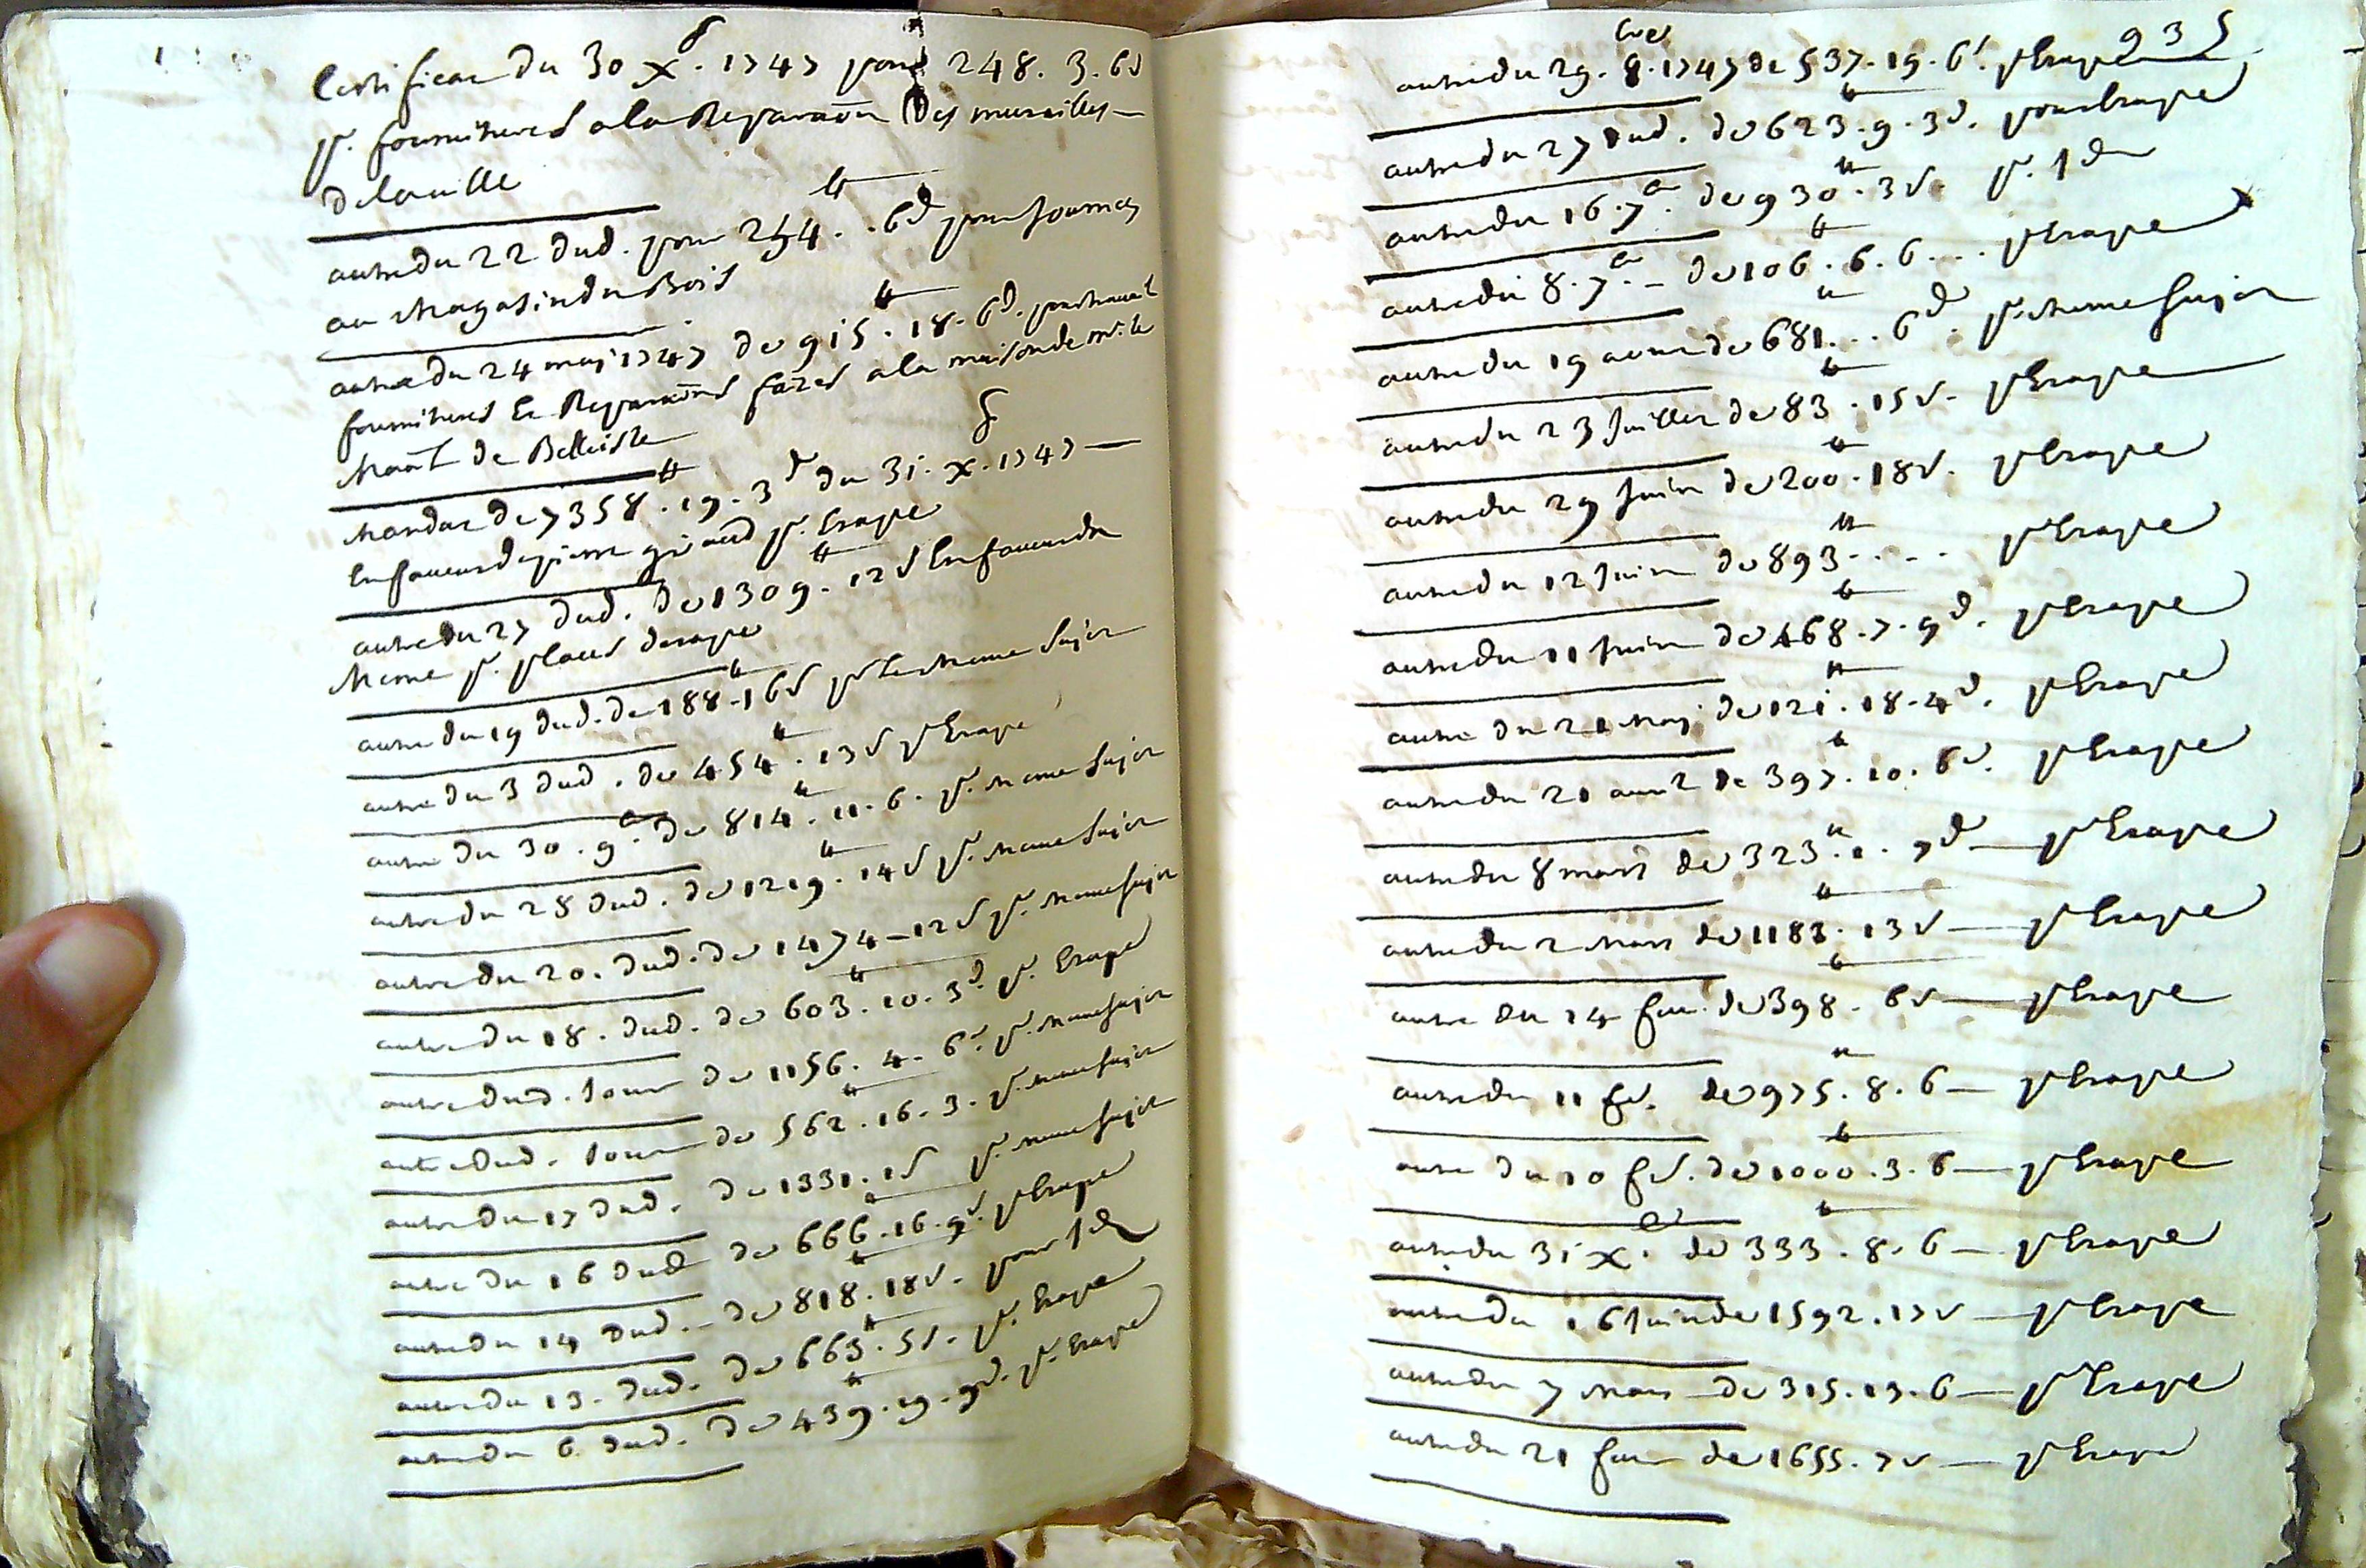 Certificat du 30 xbr. 1747 pour 248. 3. 6d
pr. fournitures a la Reparaon des murailles
de la ville
autre du 22 dud. pour 254tt. . 6d pour fournies
au Magasin du Bois
autre du 24 may 1747 de 915tt. 18. 6d. pour travail
fournitures et Reparaons faites a la maison de mr. le
Maal de Belleisle
Mandat de 7358tt. 19. 3d du 31. xbr. 1747
en faveur de pierre giraud pr. Etape
autre du 27 dud. de 1309tt. 12s en faveur du
Meme pr. places detape
autre du 19 dud. de 188tt. 16s pr le Meme sujet
autre du 3 dud. de 454tt. 13s pr Etape
autre du 30. 9bre. de 814tt. 11. 6. pr. Meme sujet
autre du 28 dud. de 1219tt. 14s pr. Meme sujet
autre du 20. dud. de 1474 - 12s pr. Meme sujet
autre du 18. dud. de 603tt. 10. 3d. pr. Etape
autre dud. Jour de 1156. 4. 6d. pr. Meme sujet
autre dud. Jour de 562tt. 16. 3. pr. Meme sujet
autre du 17 dud. de 1331. 1s pr. Meme sujet
autre du 16 dud de 666tt. 16. 9d. pr Etape
autre du 14 dud. de 818tt. 18s. pour Id
autre du 13. dud. de 663tt. 5s. pr. Etape
autre du 6 dud. de 439tt. 19. 9d. pr. Etape
935
autre du 29. 8bre. 1747 de 537. 19. 6d. pr Etape
autre du 27 dud. de 623tt. 9. 3d. pour Etape
autre du 16. 7bre. de 930tt. 3s. pr. Id
autre du 8. 7bre. de 106tt. 6. 6 . . . pr Etape
autre du 19 aoust de 681tt. . . 6d. pr. Meme sujet
autre du 23 Juillet de 83tt. 15s. pr Etape
autre du 29 Juin de 200tt. 18s. pr Etape
autre du 12 Juin de 893tt. . . . pr Etape
autre du 11 Juin de 468tt. 7. 9d. pr Etape
autre du 21 May de 121tt. 18. 4d. pr Etape
autre du 21 avril de 397tt. 10. 6d. pr Etape
autre du 8 mars de 323tt. 1. 7d pr Etape
autre du 2 Mars de 1183tt. 13s pr Etape
autre du 14 fev. de 398tt. 6s pr Etape
autre du 11 fev. de 975tt. 8. 6 pr Etape
autre du 10 fev. de 1000tt. 3. 6 pr Etape
autre du 31 xbre. de 333tt. 8. 6 pr Etape
autre du 16 Juin de 1592. 17s pr Etape
autre du 7 Mars de 315. 13. 6 pr Etape
autre du 21 fev de 1655. 7s pr Etape